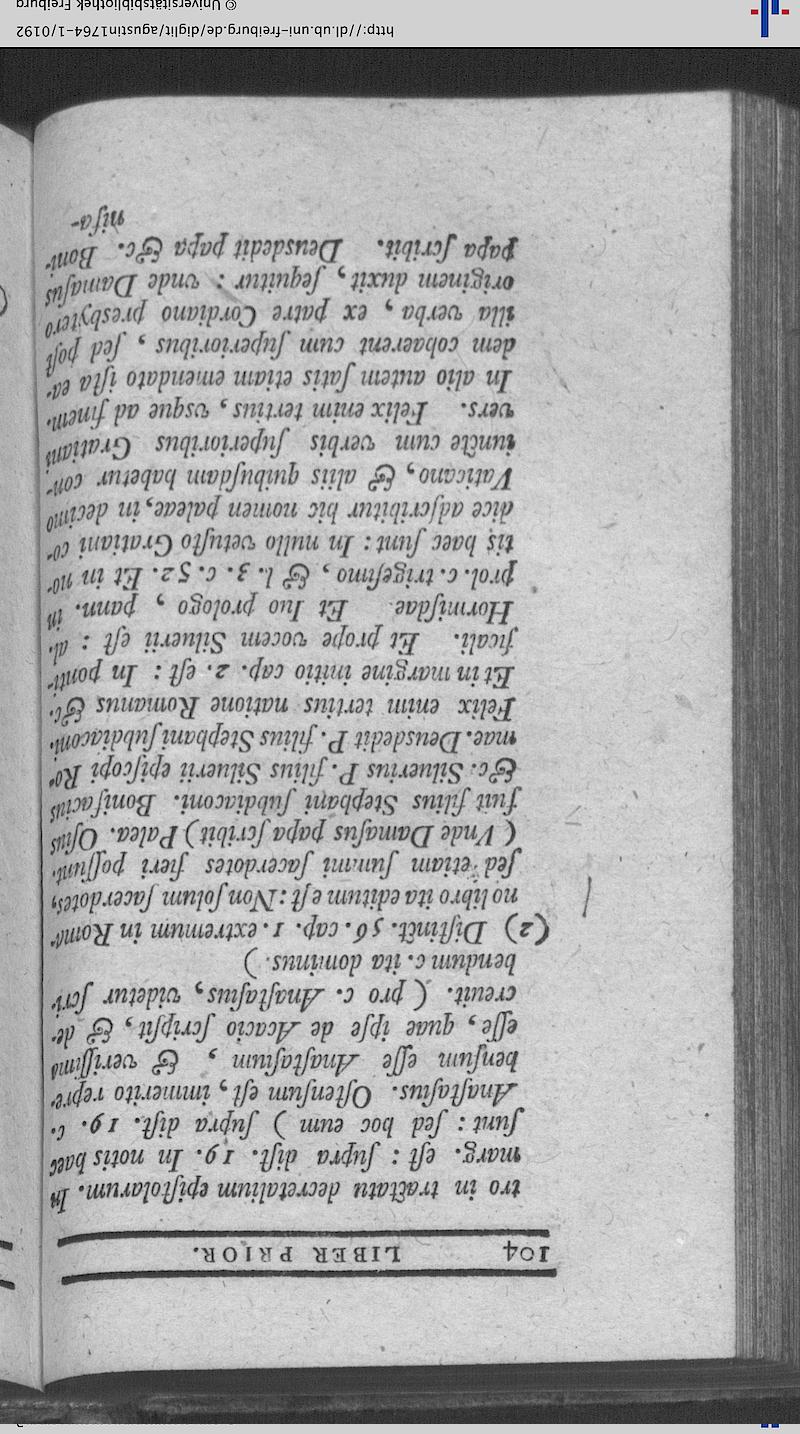 104 LIBER PRIOR.
tro in tractatu decretalium epistolarum. In
marg. est : supra dist. 19. In notis haec
sunt : sed hoc eum ) supra dist. 19. c.
Anastasius. Ostensum est, immerito repre-
hensum esse Anastasium , & verissima
esse, quae ipse de Acacio scripsit, & de-
creuit. ( pro c. Anastasius, videtur scri-
bendum c. ita dominus. )
(2) Distinct. 56. cap. 1. extremum in Roma-
no libro ita editum est : Non solum sacerdotes,
sed etiam summi sacerdotes fieri possunt.
( Vnde Damasus papa scribit ) Palea. Osius
fuit filius Stephani subdiaconi. Bonifacius
&c. Siluerius P. filius Siluerii episcopi Ro-
mae. Deusdedit P. filius Stephani subdiaconi.
Felix enim tertius natione Romanus &c.
Et in margine initio cap. 2. est : In ponti-
ficali. Et prope vocem Siluerii est : al.
Hormisdae. Et Iuo prologo , pann. in
prol. c. trigesimo , & l. 3. c. 52. Et in no-
tis haec sunt : In nullo vetusto Gratiani co-
dice adscribitur hic nomen paleae, in decimo
Vaticano, & aliis quibusdam habetur con-
iuncte cum verbis superioribus Gratiani
vers. Felix enim tertius, vsque ad finem.
In alio autem satis etiam emendato ista ea-
dem cohaerent cum superioribus , sed post
illa verba , ex patre Cordiano presbytero
originem duxit , sequitur : vnde Damasus
papa scribit. Deusdedit papa &c. Boni-
nisa-
http://dl.ub.uni-freiburg.de/diglit/agustin1764-1/0192
© Universitätsbibliothek Freiburg